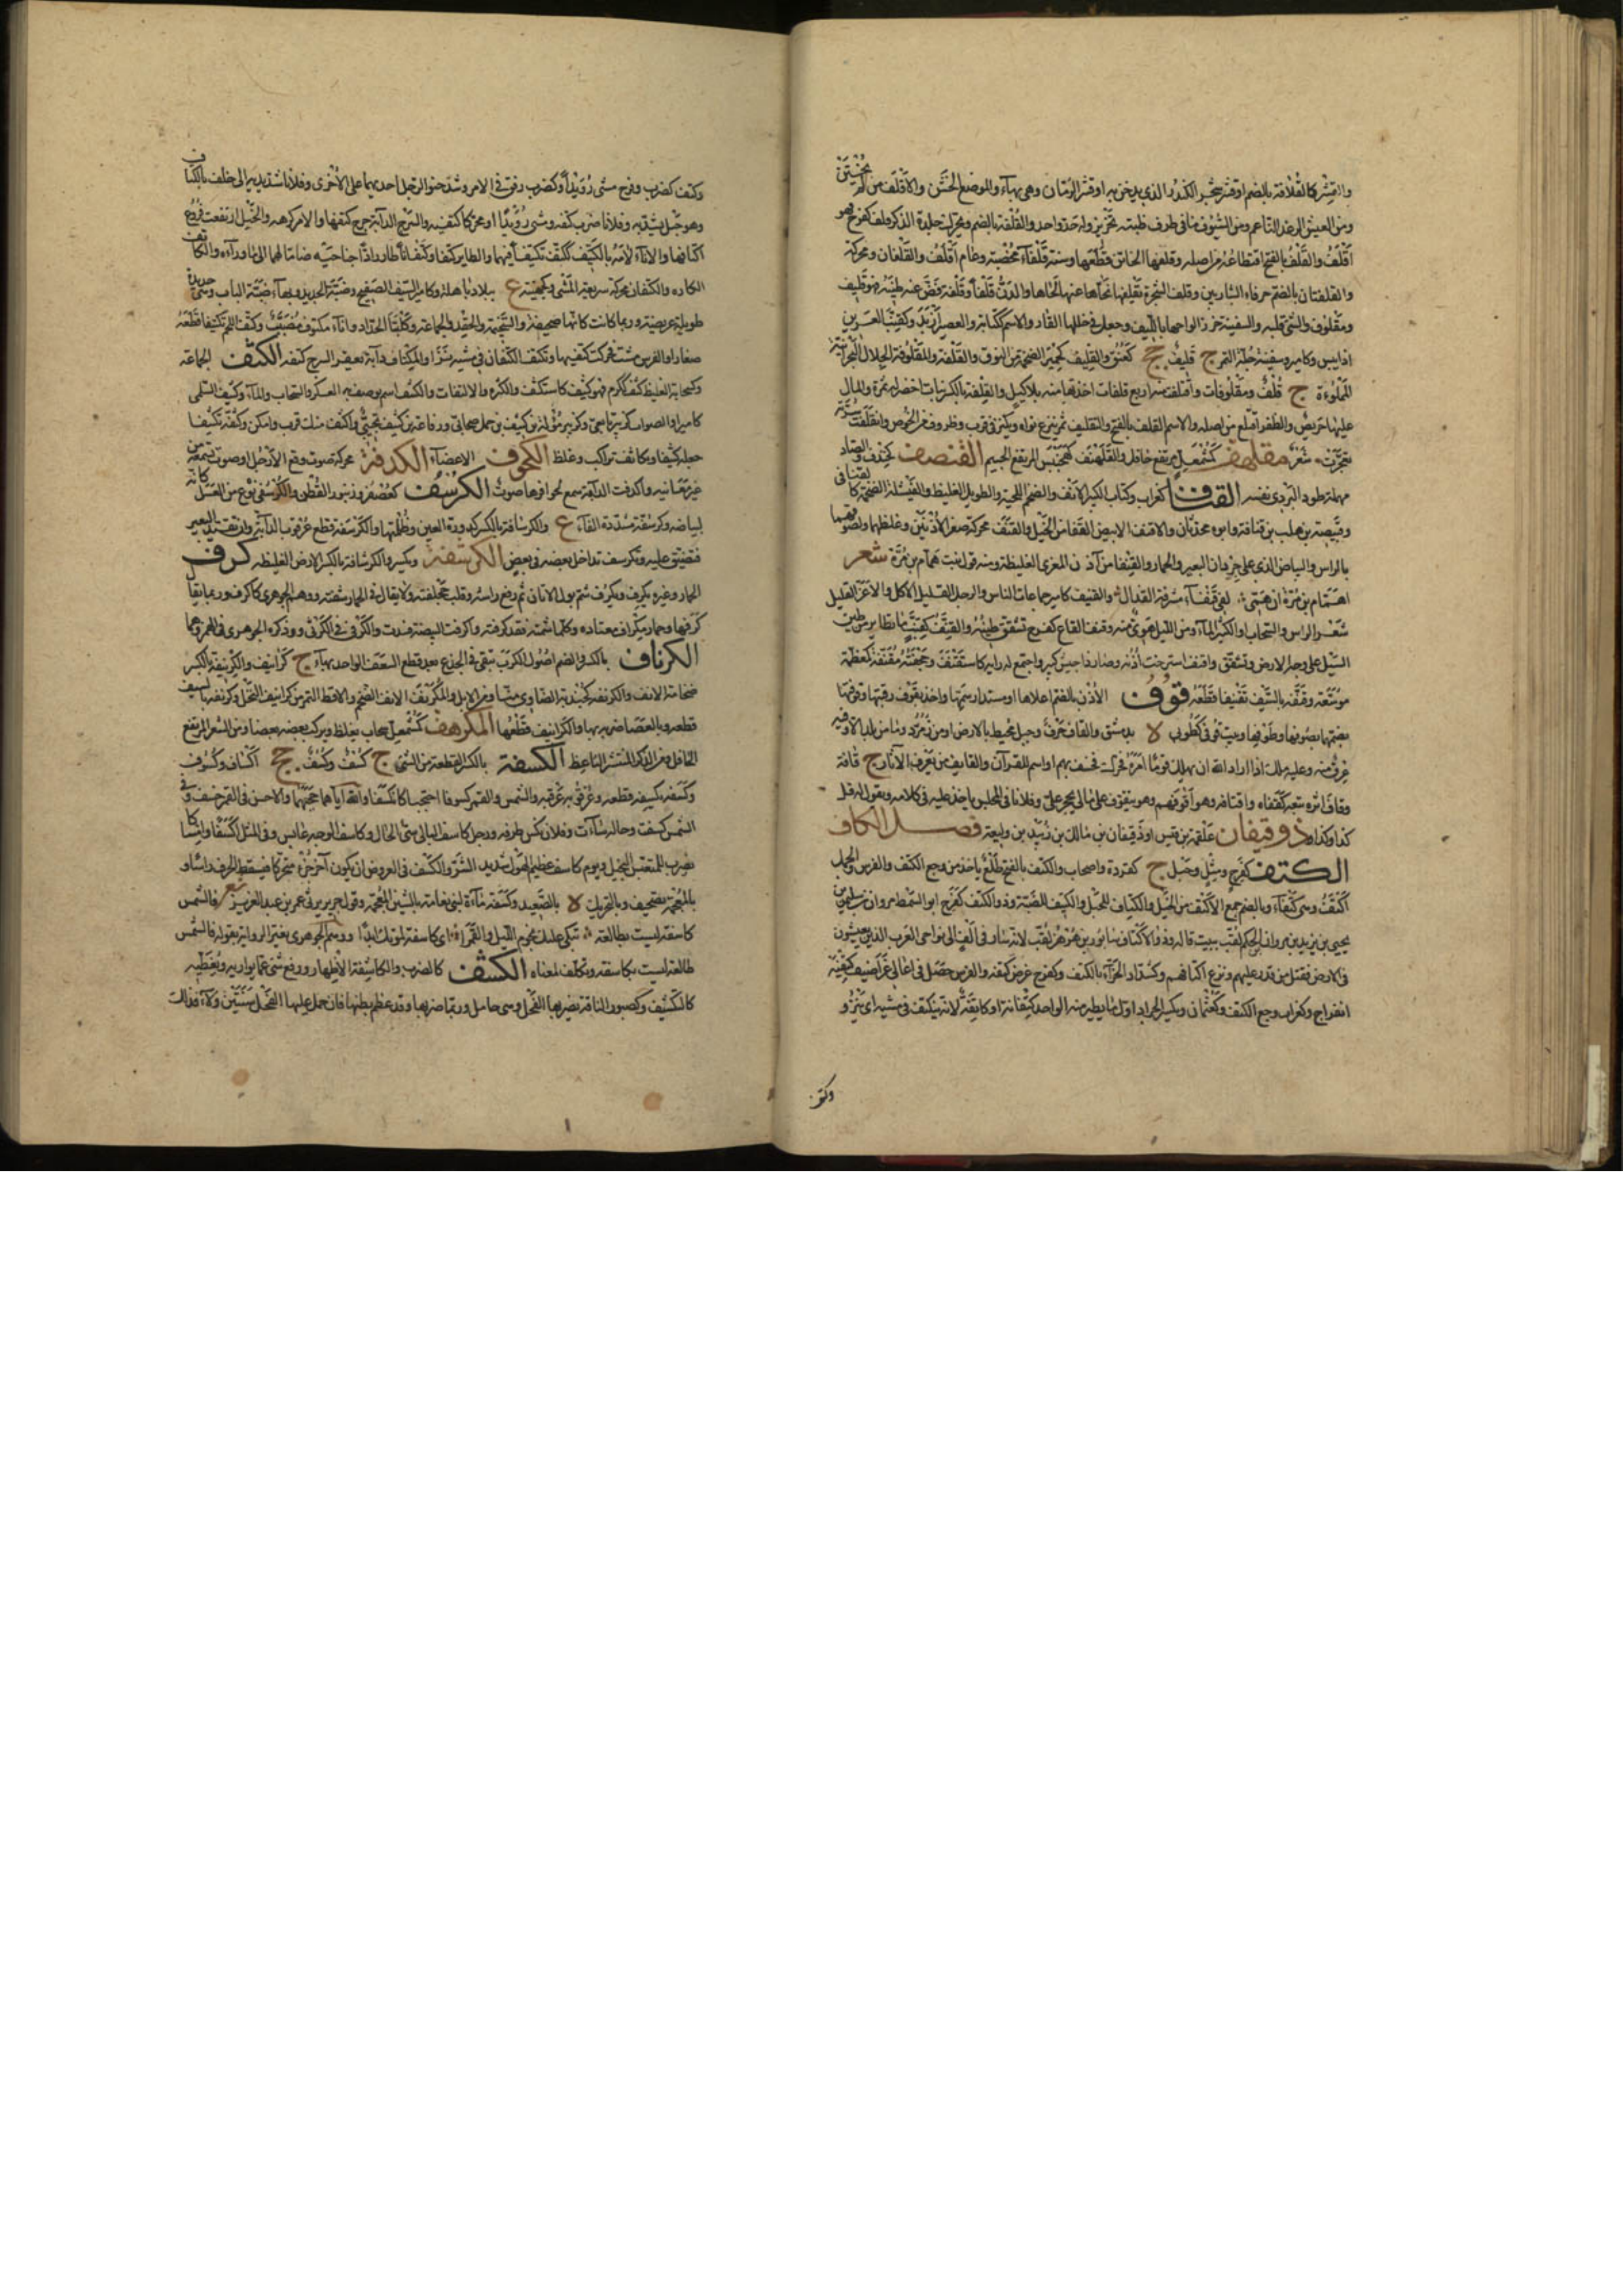 والقِشْر كالقُلافة بالضم او قشر شجر الكندر الذي يدخن به او قشر الرمان وهي بهاء والموضع الخشن والاقلف من لم يختتن
ومن العيش الرغد الناعم ومن السيوف ما في طرف ظبته تحزيز وله حد واحد والقلفة بالضم ويحرك جلدة الذكر قلف كفرح فهو
اقلف والقلف بالفتح اقتطاعه من اصله وقلفها الخاتن قطعها وسنة قلفاء مخصبة وعام اقلف والقلفان محركة
والقلفتان بالضم حرفا الشاربين وقلف الشجرة نحى عنها لحاءها والدن قلفا وقلفة فض عنه طينه فهو قليف
ومقلوف والشيء قلبه والسفينة خرز الواحها بالليف وجعل في خللها القار والاسم ككتابة والعصير ازبد وكقنب الغرين
اذا يبس وكامير وسفينة جلة التمر ج قليف جج كعنق والقليف الضخمة من النوق والقلفة والمقلوفة الجلال البحرانية
المملوءة ج قلف ومقلوفات واقتلفت منه اربع قلفات اخذتها منه بلا كيل والقلفة بالكسر نبات اخضر له ثمرة والمال
عليها حريص والظفر اقتلع من اصله والاسم القلف بالفتح والتقليف تمر ينزع نواه ويكنز في قرب وظروف من الخوص وانقلفت سرته
تعجرت شعر مقلهف كمشمعل مرتفع جافل والقلهنف المرتفع الجسيم القنصف كخندف والصاد
مهملة طوط البردي نفسه القناف كغراب وكتاب الكبير الانف والضخم اللحية والطويل الغليظ والفيشلة الضخمة كالقنافي
وقبيصة بن هلب بن قنافة وابوه محدثان والاقنف الابيض القفا من الخيل والقنف محركة صغر الاذنين وغلظهما ولصوقهما
بالراس والبياض الذي على جردان البعير والحمار والقنفا من آذان المعزى الغليظة ومنه قول بنت همام بن مرة شعر
اهمام بن مرة ان همي لفي قنفاء مشرفة القذال والقنيف كامير جماعات الناس والرجل القليل الاكل والازعر القليل
شعر الراس والسحاب والكثير الماء ومن الليل هوي منه وقنف القاع كفرح تشقق طينه والقنف كقنب ما تطاير من طين
السيل على وجه الارض وتشقق واقنف استرخت اذنه وصار ذا جيش كبير واجتمع له رايه كاستقنف وحجفة مقنفة كمعظمة
موسعة وقنفه بالسيف تقنيفا قطعه قوف الاذن بالضم اعلاها او مستدار سمها واخذ بقوف رقبته وقوفتها
بضمهما بصوفها وطوفها وبيت قوفى كطوبى لا بدمشق والقاف حرف وجبل محيط بالارض او من زمرد وما من بلد الا وفيه
عرق منه وعليه ملك اذا اراد الله ان يهلك قوما امره فحرك فخسف بهم او اسم للقرآن والقائف من يعرف الآثار ج قافة
وقاف اثره تبعه كقفاه واقتافه وهو اقوفهم وهو يتقوف على مالي يحجر علي وفلانا في المجلس ياخذ عليه في كلامه ويقول له قل
كذا وكذا ذو قيفان علقمة بن قيس او ذو قيفان بن مالك بن زبيد بن وليعة فصـل الكاف
الكتف كفرح ومثل وحبل ج كقردة واصحاب والكتف بالفتح ظلع ياخذ من وجع الكتف والفرس والجمل
اكتف وهي كتفاء وبالضم جمع الاكتف من الخيل والكتاف للحبل والكتيف للضبة وذو الكتف كفرح ابو السمط مروان بن سليمن بن
يحيى بن يزيد بن مروان بن الحكم لقب ببيت قاله وذو الاكتاف سابور بن هرمز لقب لانه سار في الف الى نواحي العرب الذين يعيثون
في الارض فقتل من قدر عليهم ونزع اكتافهم وكشداد الحزاء بالكتف وكفرح عرض كتفه والفرس حصل في اعالي غراضيف كتفيه
انفراج وكغراب وجع الكتف وكعثمان ويكسر الجراد اول ما يطير منه الواحدة كتفانة او كاتفة لانه يكتف في مشيه اي ينزو
وكتف
وكتف كضرب وفرح مشى رويدا وكضرب رفق في الامر وشد حنوي الرحل احدهما على الاخرى وفلانا شد يديه الى خلف بالكتاف
وهو حبل يشد به وفلانا ضرب كتفه ومشى رويدا او محركا كتفيه والسرج الدابة جرح كتفها والامر كرهه والخيل ارتفعت فروع
اكتافها والاناء لامه بالكتيف ككتف تكتيفا فيهما والطائر كتفا وكتفانا طار رادا جناحيه ضاما لهما الى ما وراءه والكاتف
الكاره والكتفان محركة سرعة المشي وكجهينة ع ببلاد باهلة وكامير السيف الصفيح وضبة الحديد وبهاء ضبة الباب وهي حديدة
طويلة عريضة وربما كانت كانها صحيفة والسخيمة والحقد والجماعة وكلبتا الحداد واناء مكتوف مضبب وكتف اللحم تكتيفا قطعه
صغارا والفرس مشت فحركت كتفيها وتكتف الكتفان في مشيه نزا والمكتاف دابة يعقر السرج كتفه الكثف الجماعة
وكسحابة الغليظ كثف ككرم فهو كثيف كاستكثف والكثرة والالتفاف والكثف اسم يوصف به العسكر والسحاب والماء وكثيف السلمي
كامير او الصواب كزبير تابعي وكزبير مؤلة بن كثيف بن حمل صحابي ورفاعة بن كثيف تجيبي واكثف منك قرب وامكن وكثفه تكثيفا
جعله كثيفا وتكاثف تراكب وغلظ الكحوف الاعضاء الكدفة محركة صوت وقع الارجل او صوت تسمعه من
غير معاينة واكدفت الدابة سمع لحوافرها صوت الكرسف كعصفر وزنبور القطن والكرسفي نوع من العسل كانه
لبياضه وكرسفة مشددة الفاء ع والكرسافة بالكسر كدورة العين وظلمتها والكرسفة قطع عرقوب الدابة وان تقيد البعير
فتضيق عليه وتكرسف تداخل بعضه في بعض الكرشفة ويكسر والكرشافة بالكسر الارض الغليظة كرف
الحمار وغيره يكرف ويكرف شم بول الاتان ثم رفع راسه وقلب جحفلته ولا يقال في الحمار شفته ووهم الجوهري كاكرف وربما يقال
كرفها وحمار مكراف معتاده وكلما شممته فقد كرفته واكرفت البيضة فسدت والكرفئ في الكرفئ ووذكره الجوهري في الهمز وهما
الكرناف بالكسر والضم اصول الكرب تبقى في الجذع بعد قطع السعف الواحد بهاء ج كرانيف والكرنيفة بالكسر
ضخامة الانف والكرنفة كجندبة الضاوي منا ومن الابل والمكرنف الانف الضخم ولاقط التمر من كرانيف النخل وكرنفه بالسيف
قطعه وبالعصا ضربه بها والكرانيف قطعها المكرهف كمشمعل سحاب يغلظ ويركب بعضه بعضا ومن الشعر المرتفع
الجافل ومن الذكر المنتشر الناعظ الكسفة بالكسر القطعة من الشيء ج كسف وكسف جج اكساف وكسوف
وكسفه يكسفه قطعه وعرقوبه عرقبه والشمس والقمر كسوفا احتجبا كانكسفا والله اياهما حجبهما والاحسن في القمر خسف وفي
الشمس كسفت وحاله ساءت وفلان نكس طرفه ورجل كاسف البال سيئ الحال وكاسف الوجه عابس وفي المثل اكسفا وامساكا
يضرب للمتعبس البخيل ويوم كاسف عظيم الهول شديد الشر والكسف في العروض ان يكون آخر الجزء متحركا فيسقط الحرف راسا
بالمعجمة تصحيف وبالتحريك لا بالصغد وكسفة ماءة لبني نعامة بالشين المعجمة وقول جرير يرثي عمر بن عبد العزيز شعر فالشمس
كاسفة ليست بطالعة تبكي عليك نجوم الليل والقمرا اي كاسفة لموتك ابدا ووهم الجوهري بغير الرواية بقوله فالشمس
طالعة ليست بكاسفة وتكلف لمعناه الكشف كالضرب والكاشفة الاظهار ورفع شيء عما يواريه ويغطيه
كالتكشيف وكصبور الناقة يضربها الفحل وهي حامل وربما ضربها وقد عظم بطنها فان حمل عليها الفحل سنتين ولاء فذلك